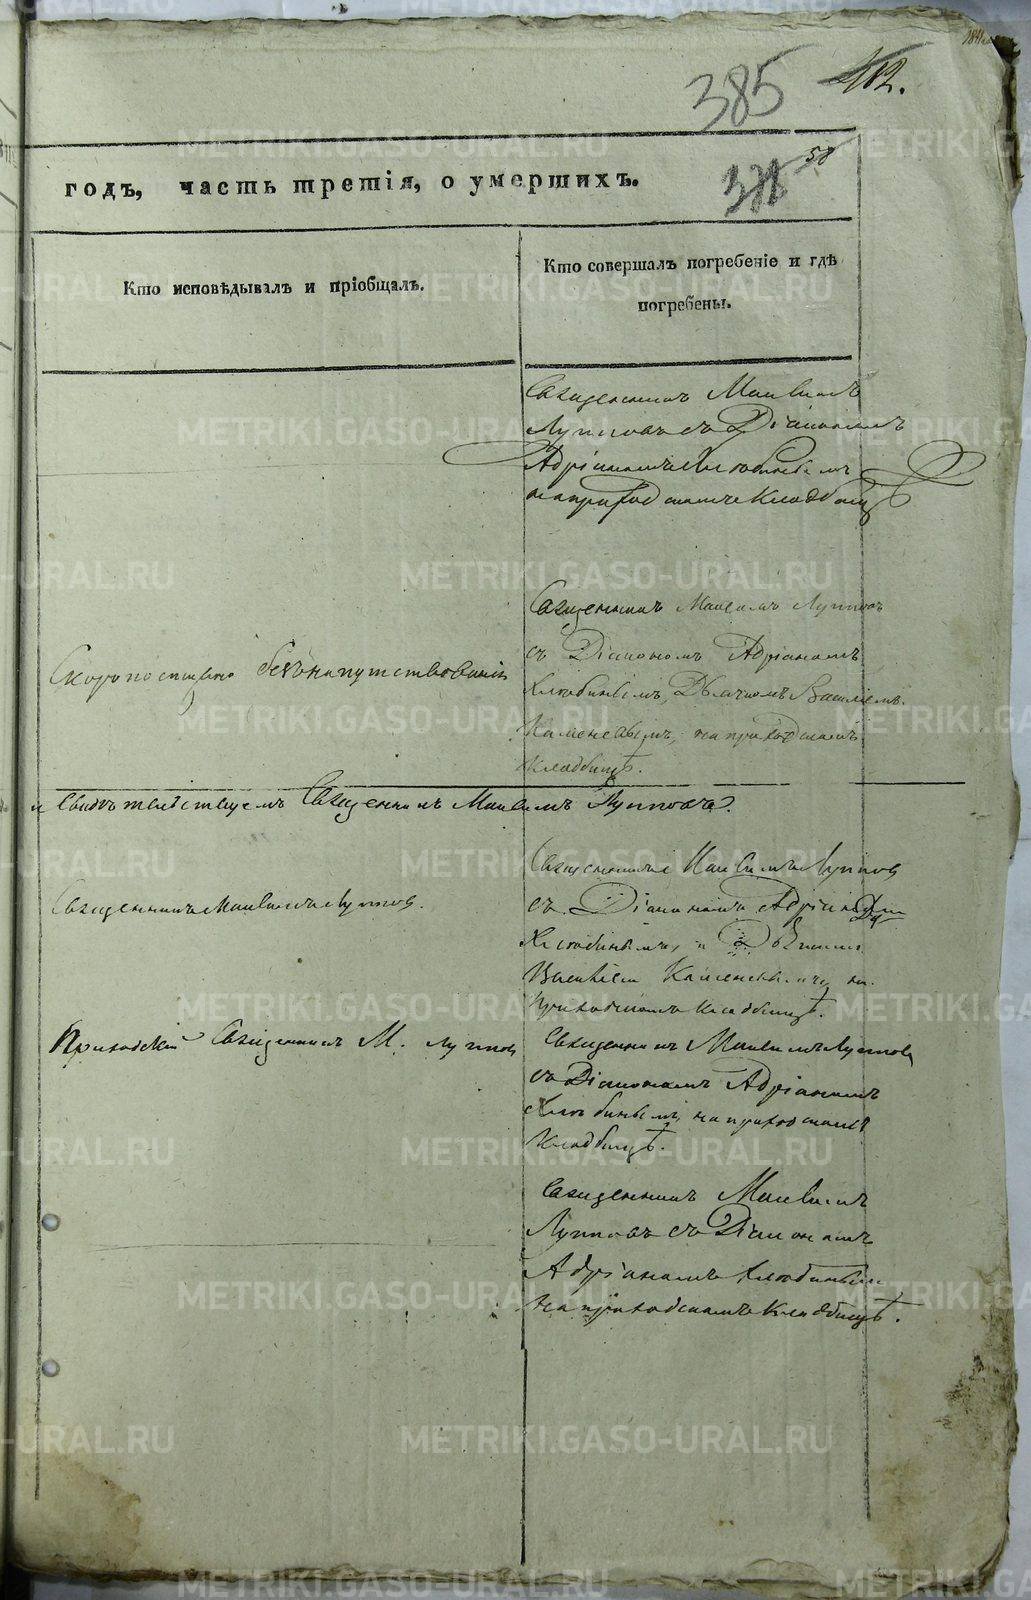 385
112.
58
годъ, часть третія, о умершихъ.
Кто исповѣдывалъ и пріобщалъ.
Кто совершалъ погребеніе и гдѣ
погребены.
Священникъ Максимъ
Лупповъ съ Діакономъ
Адріаномъ Хлюбинымъ
на приходскомъ Кладбищѣ
Священникъ Максимъ Лупповъ
съ Діакономъ Адріаномъ
Хлюбинымъ, Дьячкомъ Василіемъ
Каменскимъ, на приходскомъ
Кладбищѣ.
Скоропостижно безъ напутствованія
и Свидѣтельствуемъ Священникъ Максимъ Лупповъ.
Священникъ Максимъ Лупповъ.
Священникъ Максимъ Лупповъ
съ Діакономъ Адріаномъ
Хлюбинымъ, и
Василіемъ Каменскимъ на
Приходскомъ Кладбищѣ.
Приходскій Священникъ М. Лупповъ
Священникъ Максимъ Лупповъ
съ Діакономъ Адріаномъ
Хлюбинымъ, на приходскомъ
Кладбищѣ.
Священникъ Максимъ
Лупповъ съ Діакономъ
Адріаномъ Хлюбинымъ
на приходскомъ Кладбищѣ.
METRIKI.GASO-URAL.RU